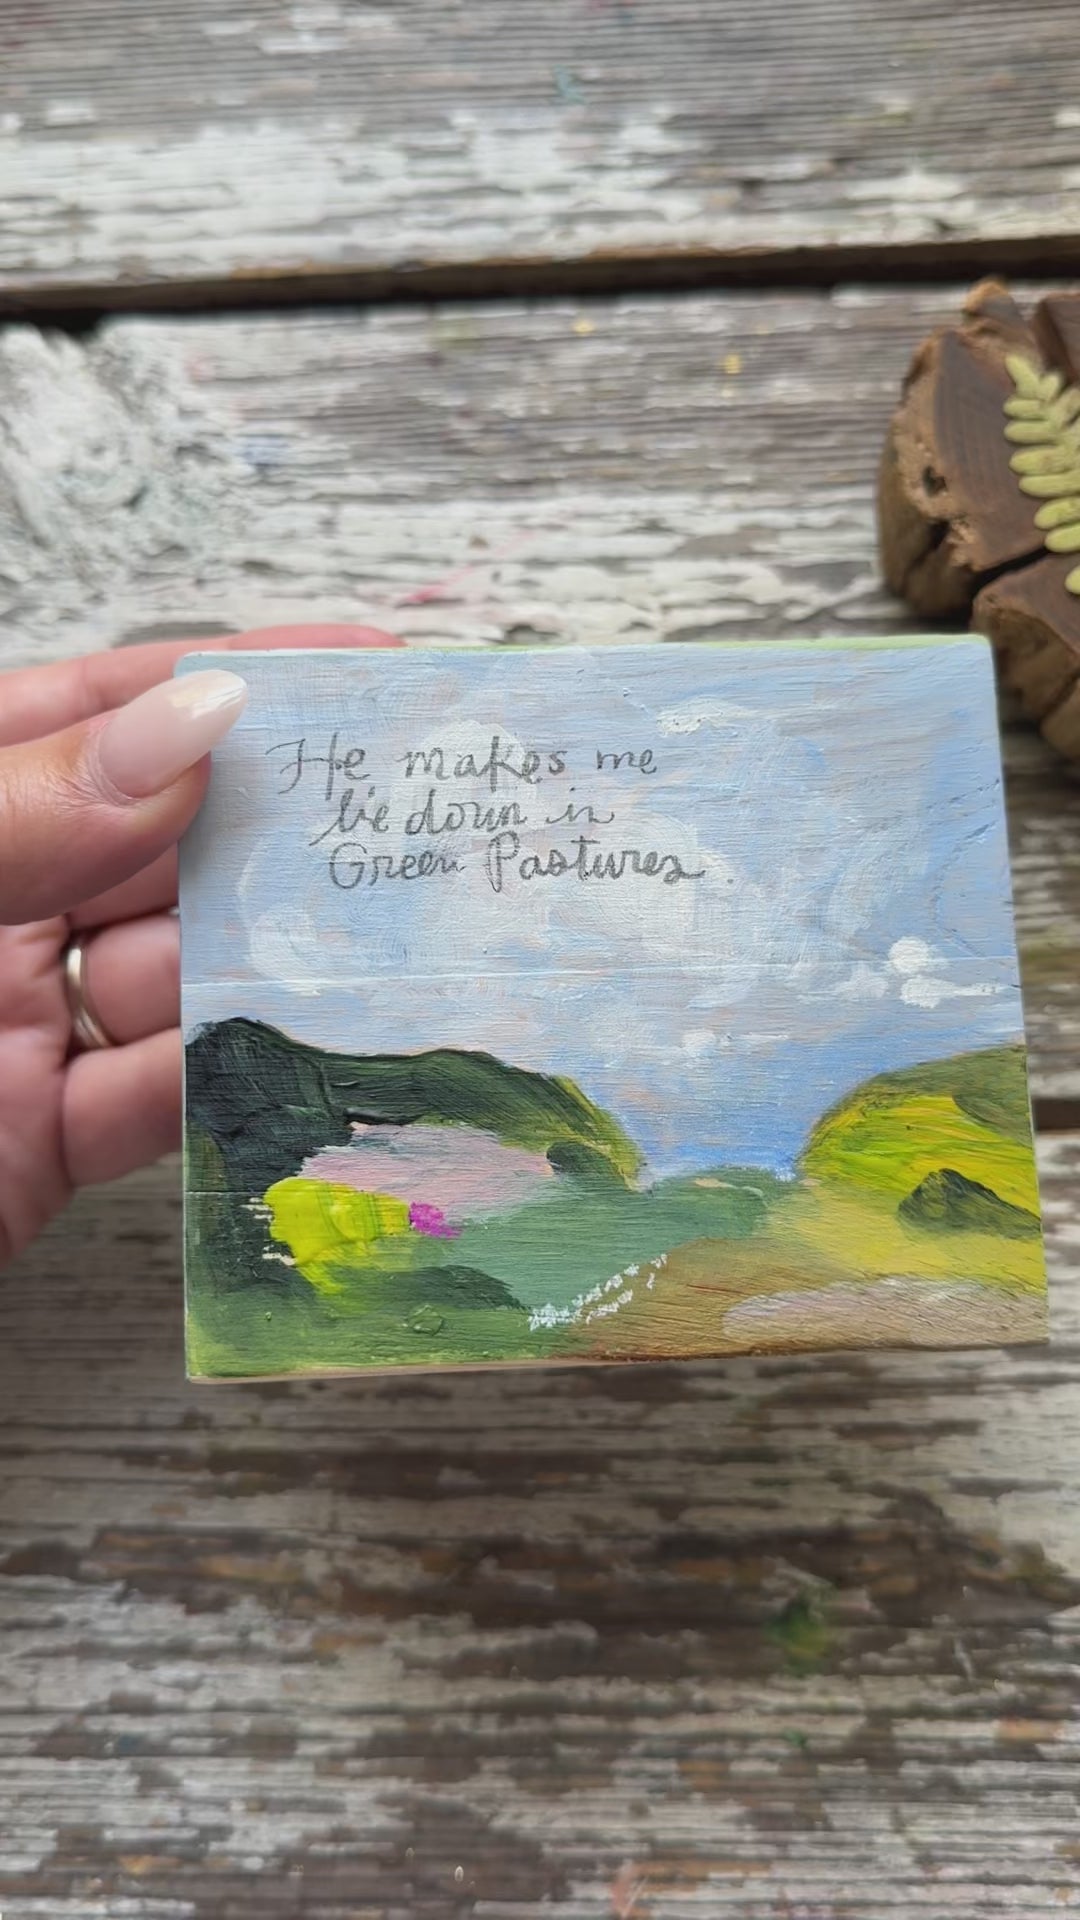 He makes me
lie down in
Green Pastures.